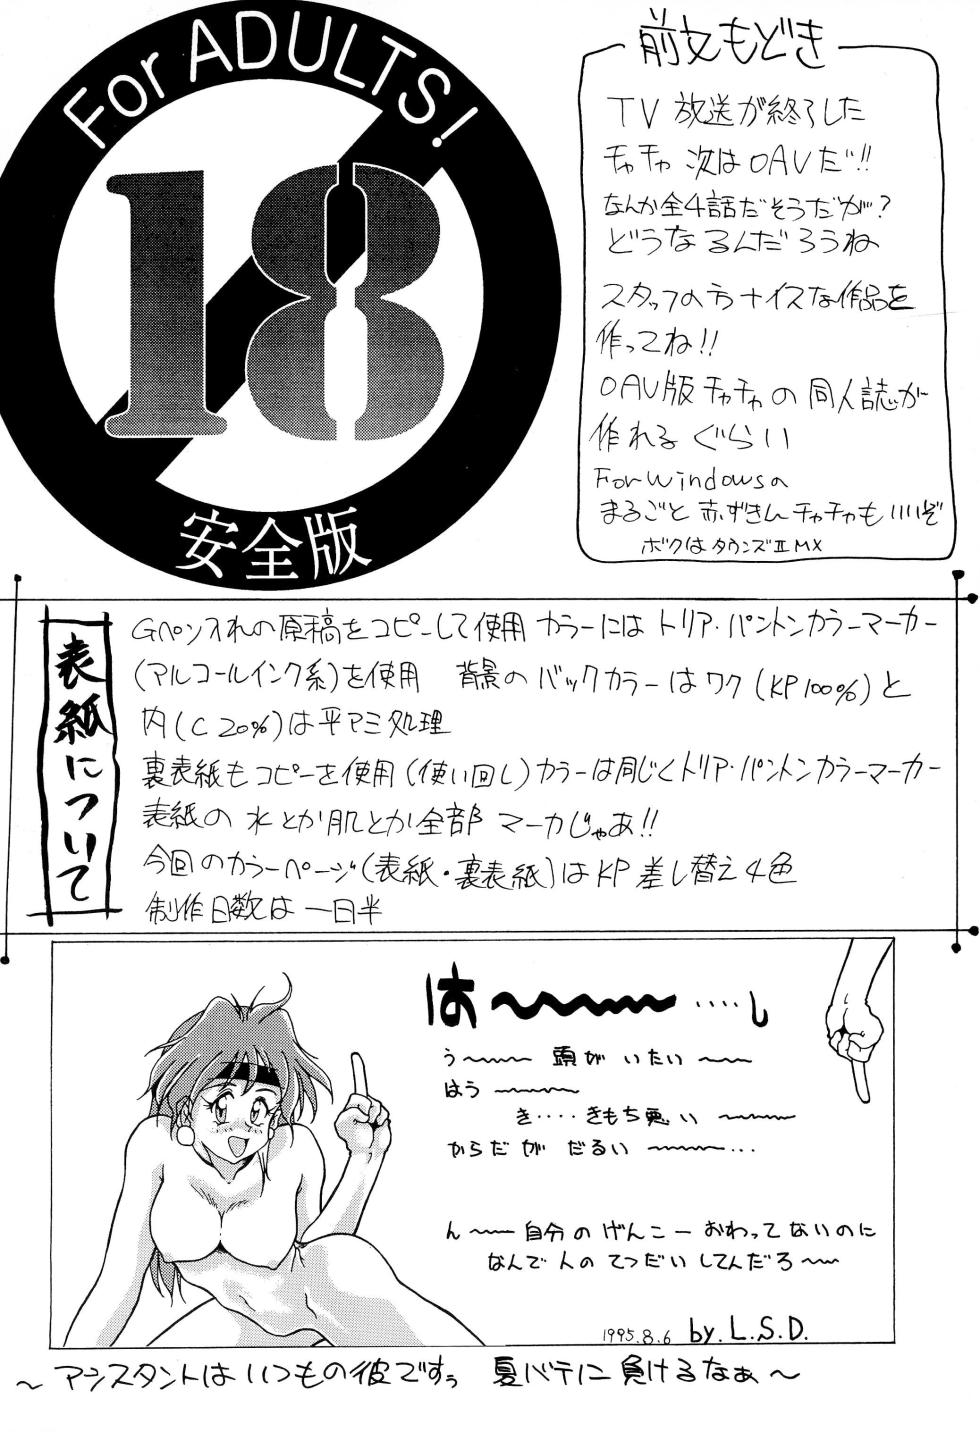 For ADULTS!
18
安全版
前文もどき
TV 放送が終了した
チャチャ 次はOAVだ!!
なんか全4話だそうだが?
どうなるんだろうね
スタッフの方ナイスな作品を
作ってね!!
OAV版チャチャの同人誌が
作れるぐらい
For Windowsの
まるごと赤ずきんチャチャもいいぞ
ボクはタウンズⅡMX
表紙について
Gペン入れの原稿をコピーして使用 カラーにはトリア・パントンカラーマーカー
(アルコールインク系)を使用 背景のバックカラーはワク(KP100%)と
内(C20%)は平アミ処理
裏表紙もコピーを使用(使い回し)カラーは同じくトリア・パントンカラーマーカー
表紙の水とか肌とか全部マーカじゃあ!!
今回のカラーページ(表紙・裏表紙)はKP差し替え4色
制作日数は一日半
は〜〜〜‥‥し
う〜〜 頭がいたい〜〜
はう〜〜〜
き‥‥きもち悪い〜〜〜
からだがだるい〜〜〜…
ん〜〜自分のげんこーおわってないのに
なんで人のてつだいしてんだろ〜〜
1995.8.6 by.L.S.D.
〜アシスタントはいつもの彼ですぅ 夏バテに負けるなぁ〜